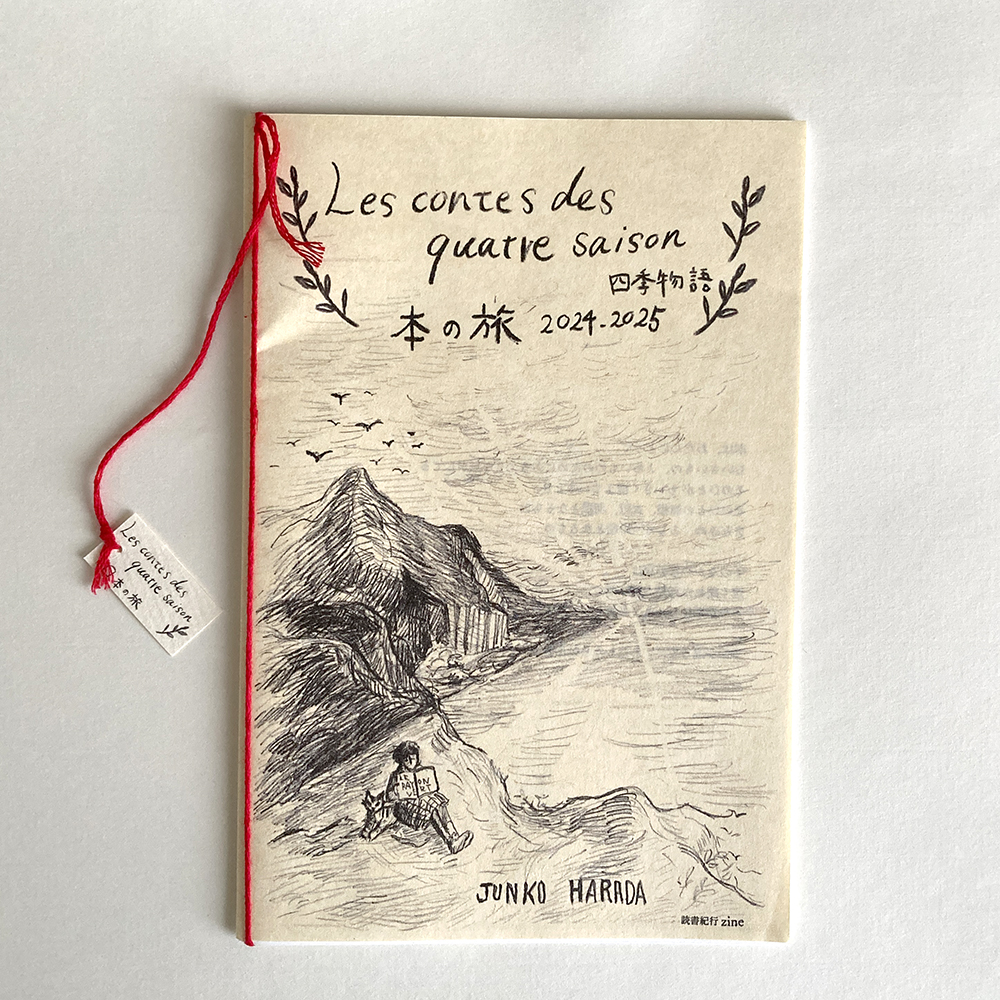 Les contes des
quatre saison
四季物語
本の旅 2024-2025
JUNKO HARADA
読書紀行 zine
Les contes des
quatre saison
本の旅